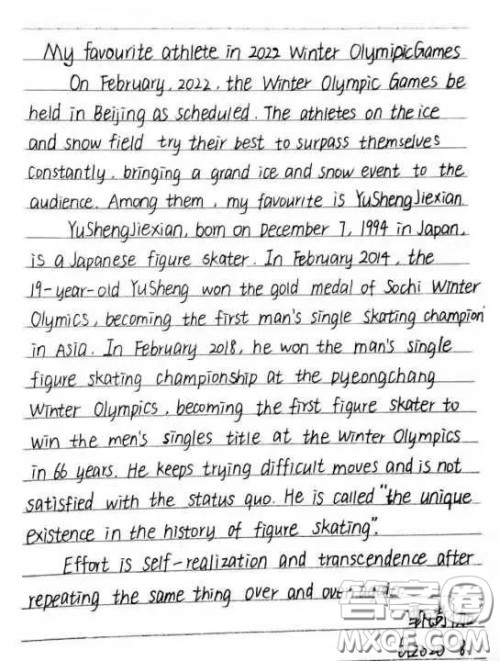 My favourite athlete in 2022 Winter OlymipicGames
On February, 2022, the Winter Olympic Games be
held in Beijing as scheduled. The athletes on the ice
and snow field try their best to surpass themselves
constantly, bringing a grand ice and snow event to the
audience. Among them, my favourite is YuShengJiexian
YuShengJiexian, born on December 7, 1994 in Japan,
is a Japanese figure skater. In February 2014, the
19-year-old YuSheng won the gold medal of Sochi Winter
Olymics, becoming the first man's single skating champion
in Asia. In February 2018, he won the man's single
figure skating championship at the pyeongchang
Winter Olympics, becoming the first figure skater to
win the men's singles title at the Winter Olympics
in 66 years. He keeps trying difficult moves and is not
satisfied with the status quo. He is called "the unique
existence in the history of figure skating".
Effort is self-realization and transcendence after
repeating the same thing over and over
答案圈
MXQE.COM